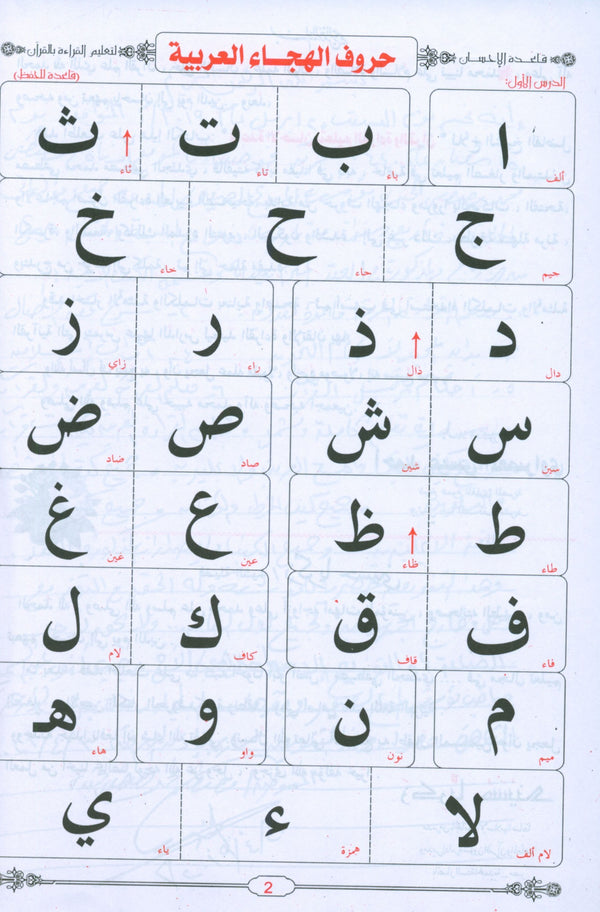 قاعدة الإحسان حروف الهجاء العربية لتعليم القراءة بالقرآن
الدرس الأول: (قاعدة للحفظ)
ا ب ت ث
ألف باء تاء ثاء
ج ح خ
جيم حاء خاء
د ذ ر ز
دال ذال راء زاي
س ش ص ض
سين شين صاد ضاد
ط ظ ع غ
طاء ظاء عين غين
ف ق ك ل
فاء قاف كاف لام
م ن و هـ
ميم نون واو هاء
لا ء ي
لام ألف همزة ياء
2